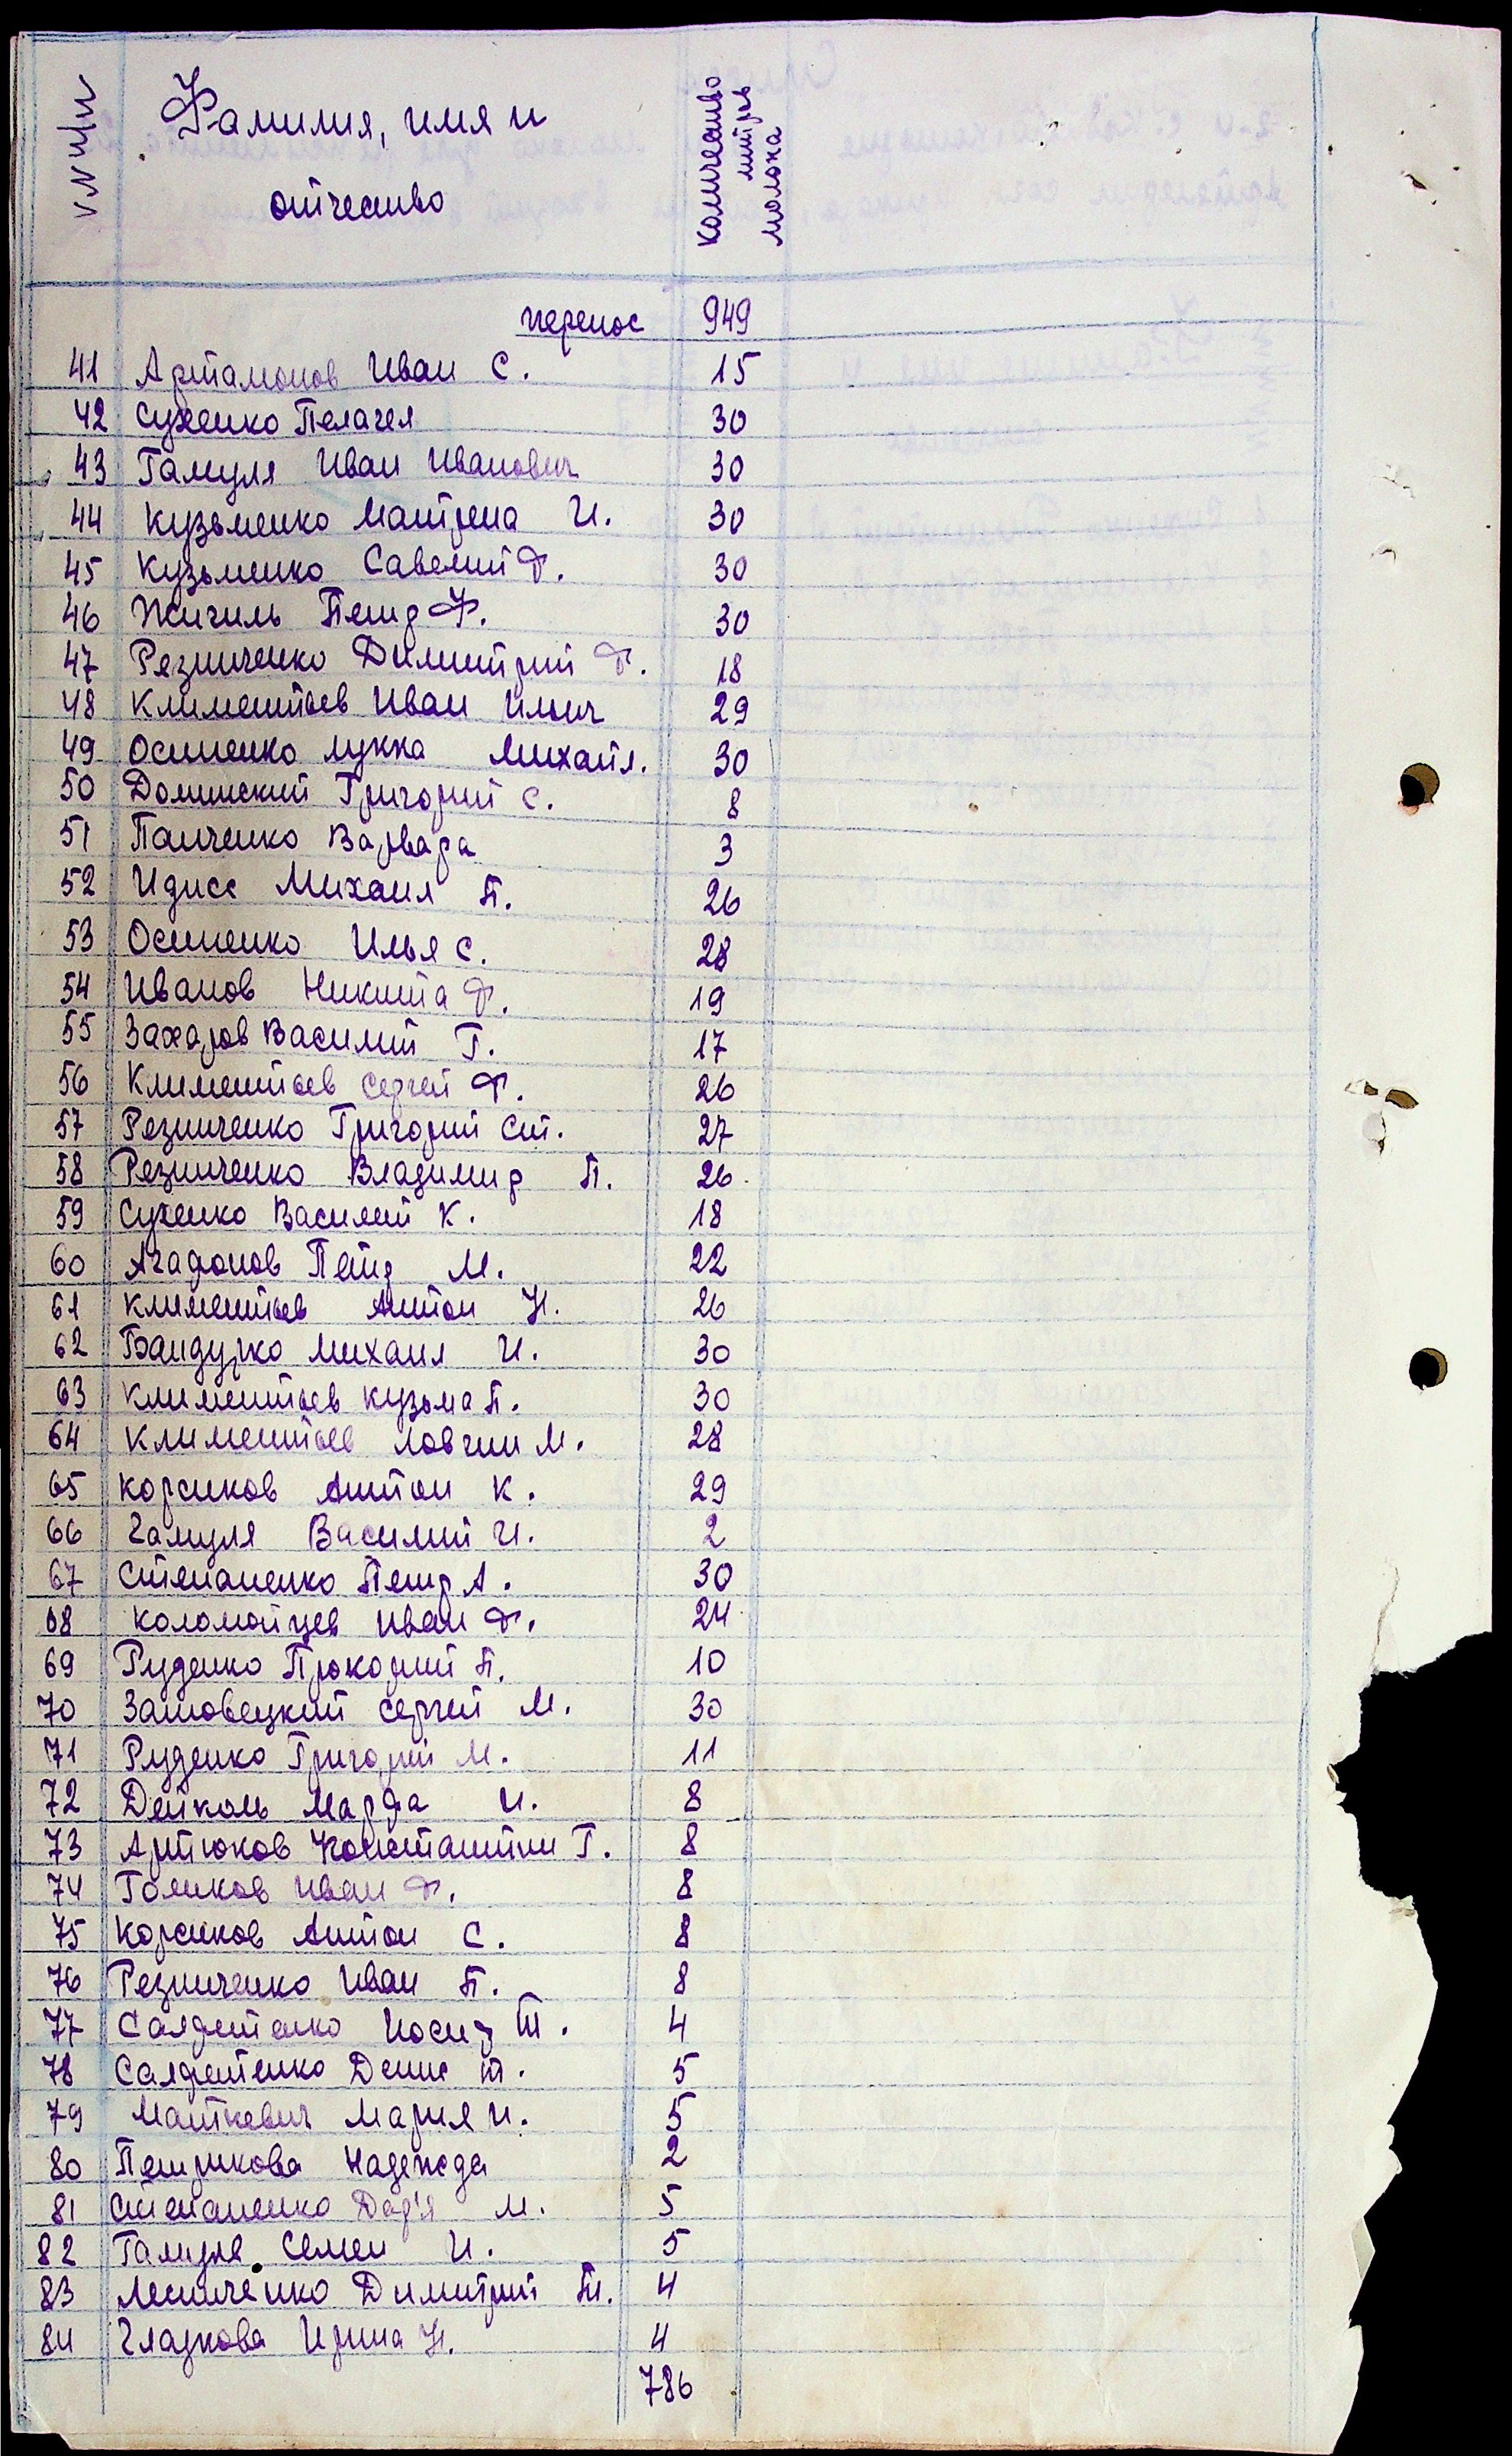 № п/п Фамилия, имя и отчество Количество литров молока
перенос 949
41 Артамонов Иван С. 15
42 Сухенко Пелагея 30
43 Гамуля Иван Иванович 30
44 Кузьменко Матрена И. 30
45 Кузьменко Савелий Ф. 30
46 Жигиль Петр Ф. 30
47 Резниченко Димитрий Ф. 18
48 Климентьев Иван Ильич 29
49 Осипенко Лукка Михайл. 30
50 Долинский Григорий С. 8
51 Панченко Варвара 3
52 Идисс Михаил П. 26
53 Осипенко Илья С. 28
54 Иванов Никита Ф. 19
55 Захаров Василий Г. 17
56 Климентьев Сергей Ф. 26
57 Резниченко Григорий Ст. 27
58 Резниченко Владимир П. 26
59 Сухенко Василий К. 18
60 Агафонов Петр М. 22
61 Климентьев Антон Н. 26
62 Бандурко Михаил И. 30
63 Климентьев Кузьма П. 30
64 Климентьев Ловгин М. 28
65 Корсиков Антон К. 29
66 Гамуля Василий И. 2
67 Степаненко Петр А. 30
68 Коломойцев Иван Ф. 24
69 Руденко Прокорий П. 10
70 Зановецкий Сергей М. 30
71 Руденко Григорий М. 11
72 Дейкаль Марфа И. 8
73 Артюков Константин Г. 8
74 Голиков Иван Ф. 8
75 Корсиков Антон С. 8
76 Резниченко Иван П. 8
77 Иосиф Т. 4
78 Денис Т. 5
79 Маткевич Мария И. 5
80 Петрикова Надежда 2
81 Степаненко Дар'я М. 5
82 Гамуля Семен И. 5
83 Лесниченко Димитрий Т. 4
84 Гладкова Ирина Н. 4
786